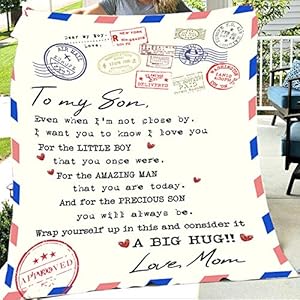 Dear My Boy,
Love:
R
NEW YORK
AIR MAIL
DELIVERED
WASHINGTON
To my Son,
Even when I'm not close by.
I want you to know I love you
For the LITTLE BOY
that you once were.
For the AMAZING MAN
that you are today.
And for the PRECIOUS SON
you will always be.
Wrap yourself up in this and consider it
A BIG HUG!!
Love, Mom
APPROVED